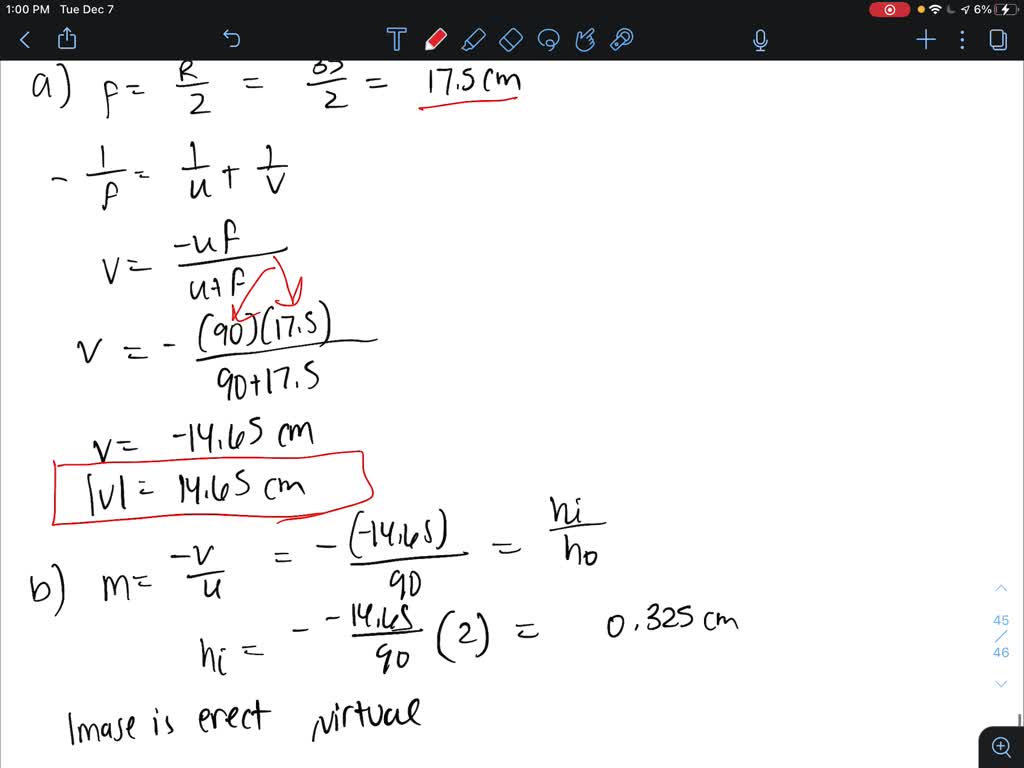 1:00 PM Tue Dec 7 6%
T
a) f = R/2 = 35/2 = 17.5 cm
- 1/f = 1/u + 1/v
v = -uf/u+f
v = - (90)(17.5)/90+17.5
v = -14.65 cm
|v| = 14.65 cm
b) m = -v/u = - (-14.65)/90 = hi/ho
hi = - -14.65/90 (2) = 0.325 cm
Image is erect virtual
45
/
46